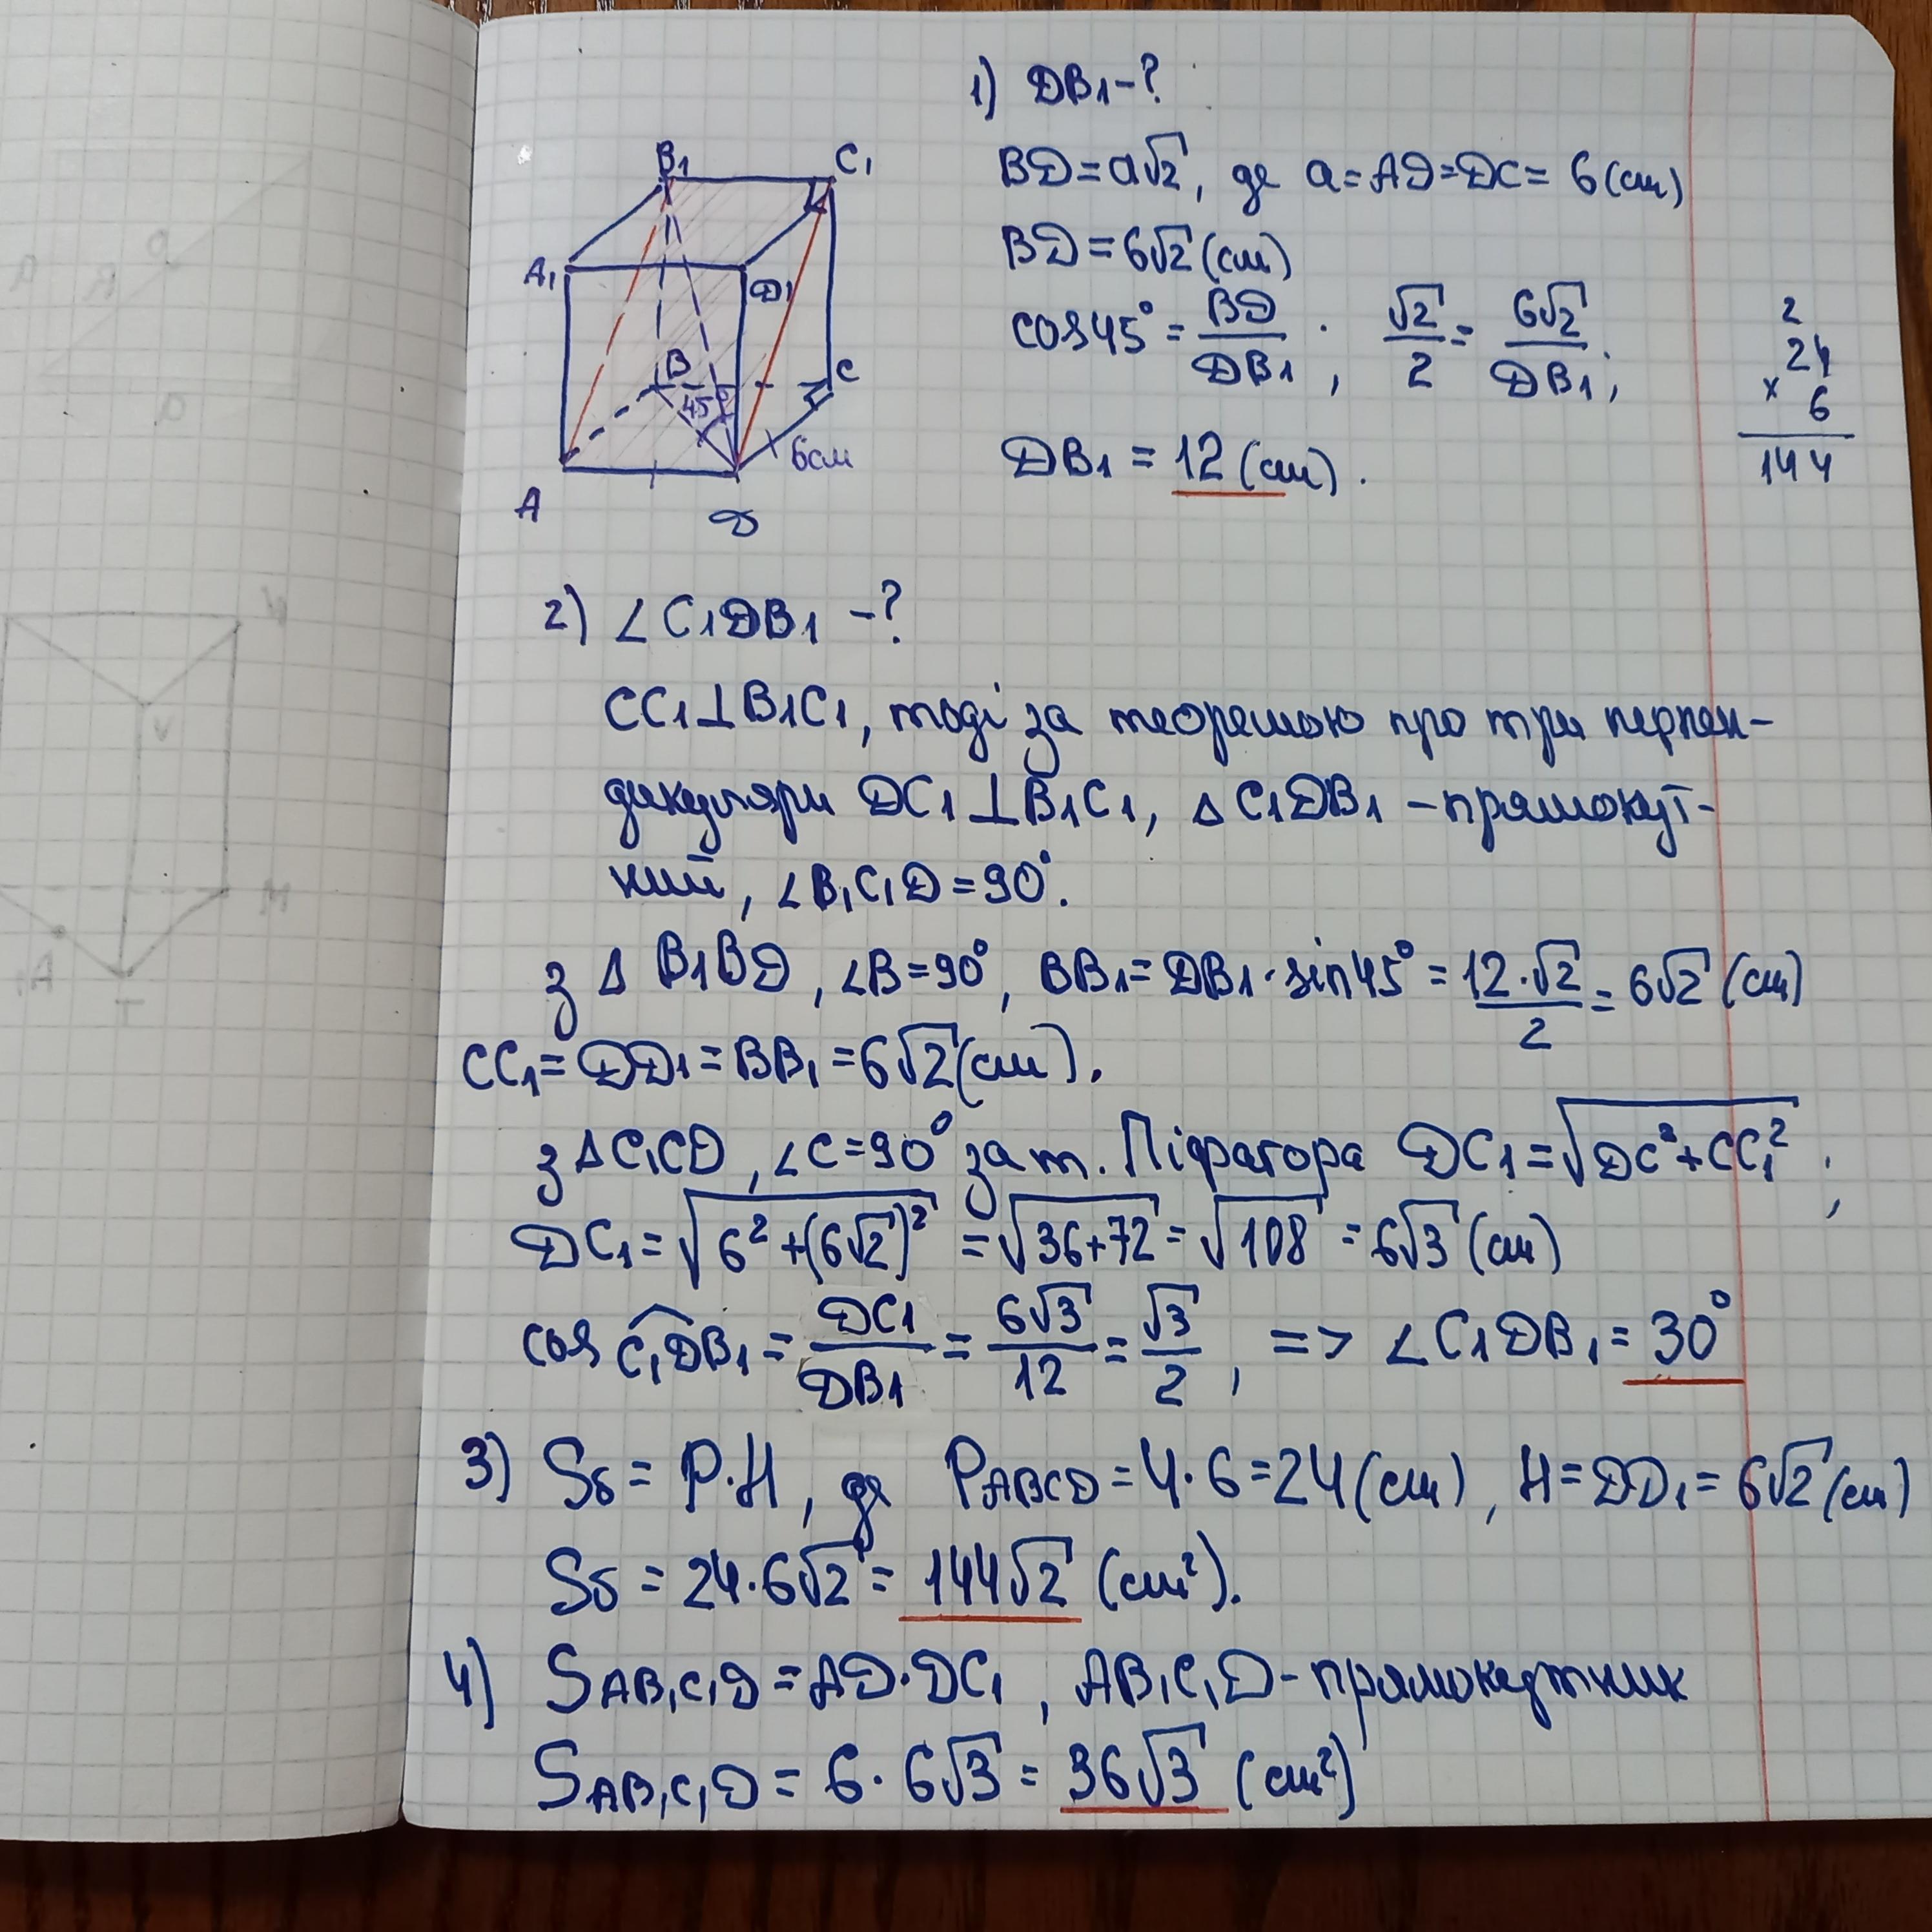 1) DB₁ - ?
B₁ C₁
A₁ D₁
B C
45°
6см
A D
BD = a√2, де a = AD = DC = 6 (см)
BD = 6√2 (см)
cos45° = BD/DB₁ ; √2/2 = 6√2/DB₁ ;
DB₁ = 12 (см).
2
24
× 6
144
2) ∠C₁DB₁ - ?
CC₁ ⊥ B₁C₁, тоді за теоремою про три перпен-
дикуляри DC₁ ⊥ B₁C₁, △ C₁DB₁ - прямокут-
ний, ∠B₁C₁D = 90°.
з △ B₁BD, ∠B = 90°, BB₁ = DB₁ · sin45° = 12·√2/2 = 6√2 (см)
CC₁ = DD₁ = BB₁ = 6√2 (см).
з △C₁CD, ∠C = 90° за т. Піфагора DC₁ = √(DC² + CC₁²) ;
DC₁ = √(6² + (6√2)²) = √(36+72) = √108 = 6√3 (см)
cos C₁DB₁ = DC₁/DB₁ = 6√3/12 = √3/2, => ∠C₁DB₁ = 30°
3) Sб = P·H, де P_ABCD = 4·6 = 24 (см), H = DD₁ = 6√2 (см)
Sб = 24·6√2 = 144√2 (см²).
4) S_AB₁C₁D = AD·DC₁, AB₁C₁D - прямокутник
S_AB₁C₁D = 6·6√3 = 36√3 (см²)